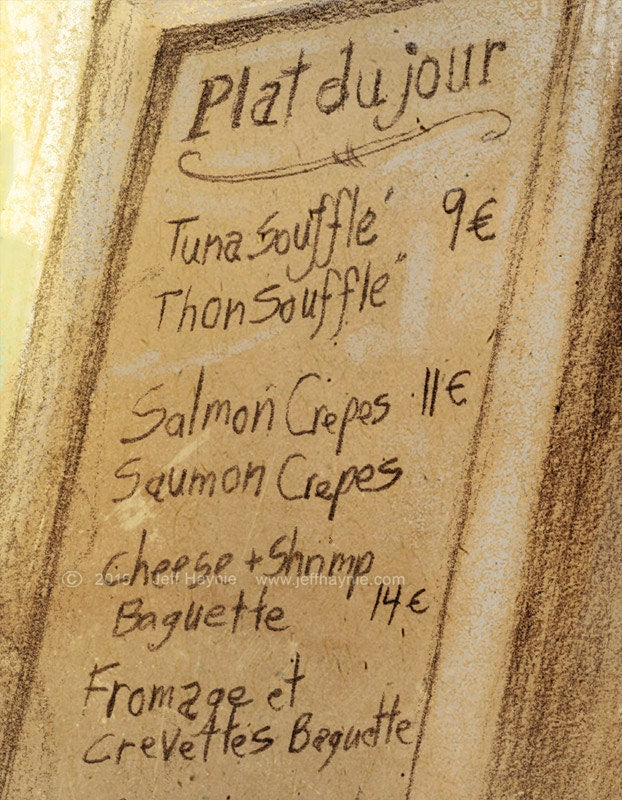 Plat du jour
Tuna Soufflé 9€
Thon Soufflé
Salmon Crepes 11€
Saumon Crepes
Cheese + Shrimp
© 2015 Jeff Haynie www.jeffhaynie.com
Baguette 14€
Fromage et
Crevettes Baguette